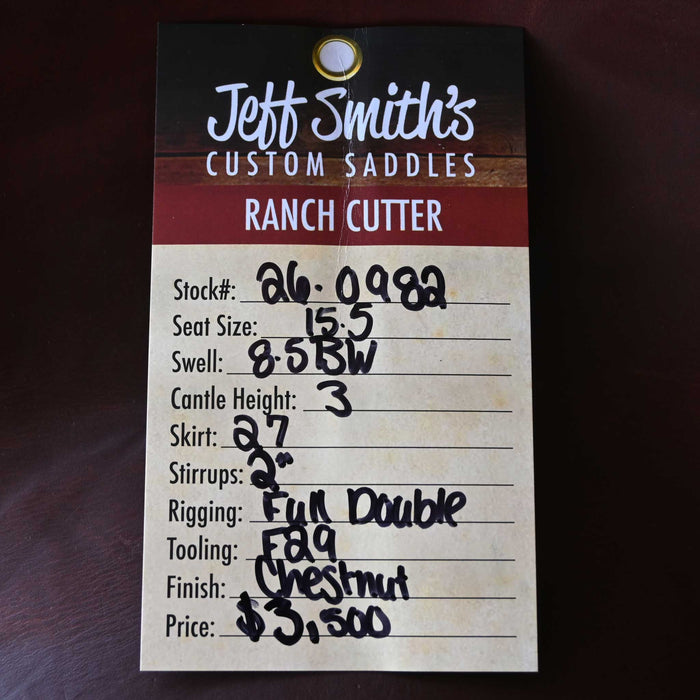 Jeff Smith's
CUSTOM SADDLES
RANCH CUTTER
Stock#: 26.0982
Seat Size: 15.5
Swell: 8.5 BW
Cantle Height: 3
Skirt: 27
Stirrups: 2"
Rigging: Full Double
Tooling: F29
Finish: Chestnut
Price: $3,500